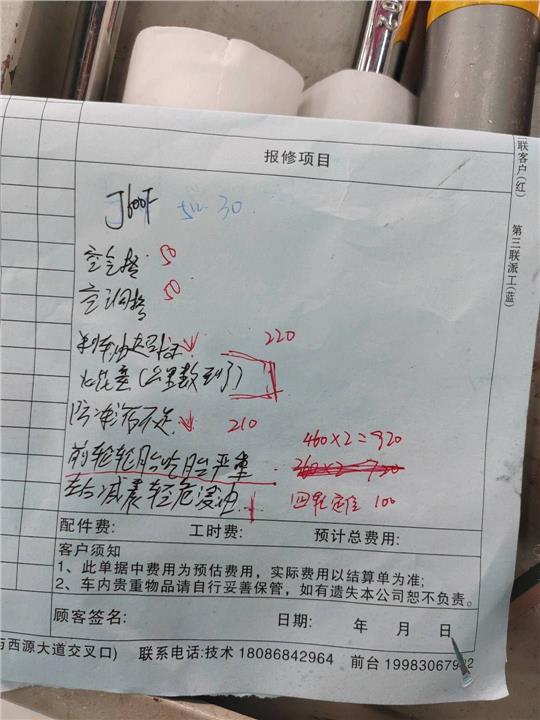 报修项目
二联客户(红)
第三联派工(蓝)
J600F 5W-30
空气格 50
空调格 50
刹车油
220
火花塞(公里数到了)
防冻液不足 210
460×2=920
前轮轮胎吃胎严重
360×2 720
左右减震轻危渗油 四轮定位 100
配件费: 工时费: 预计总费用:
客户须知
1、此单据中费用为预估费用,实际费用以结算单为准;
2、车内贵重物品请自行妥善保管,如有遗失本公司恕不负责。
顾客签名: 日期: 年 月 日
与西源大道交叉口) 联系电话:技术 18086842964 前台 199830679